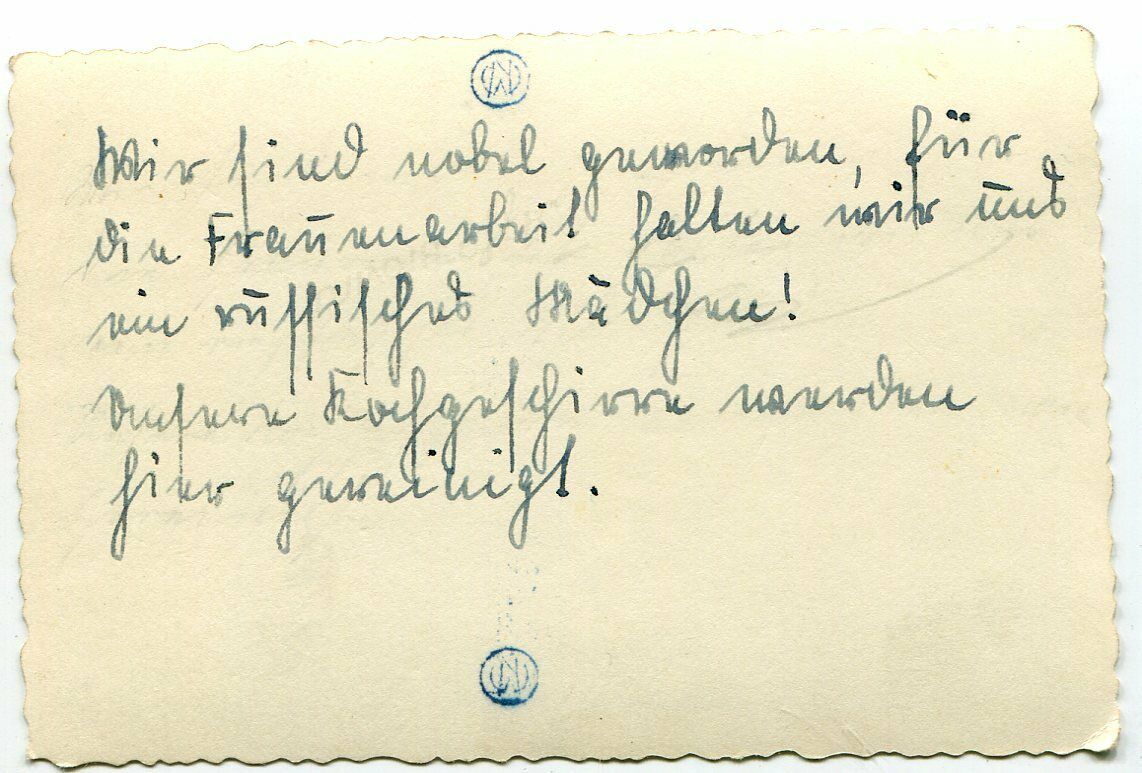 Wir sind nobel geworden, für
die Frauenarbeit halten wir uns
ein russisches Mädchen!
Unsere Kochgeschirre werden
hier gereinigt.